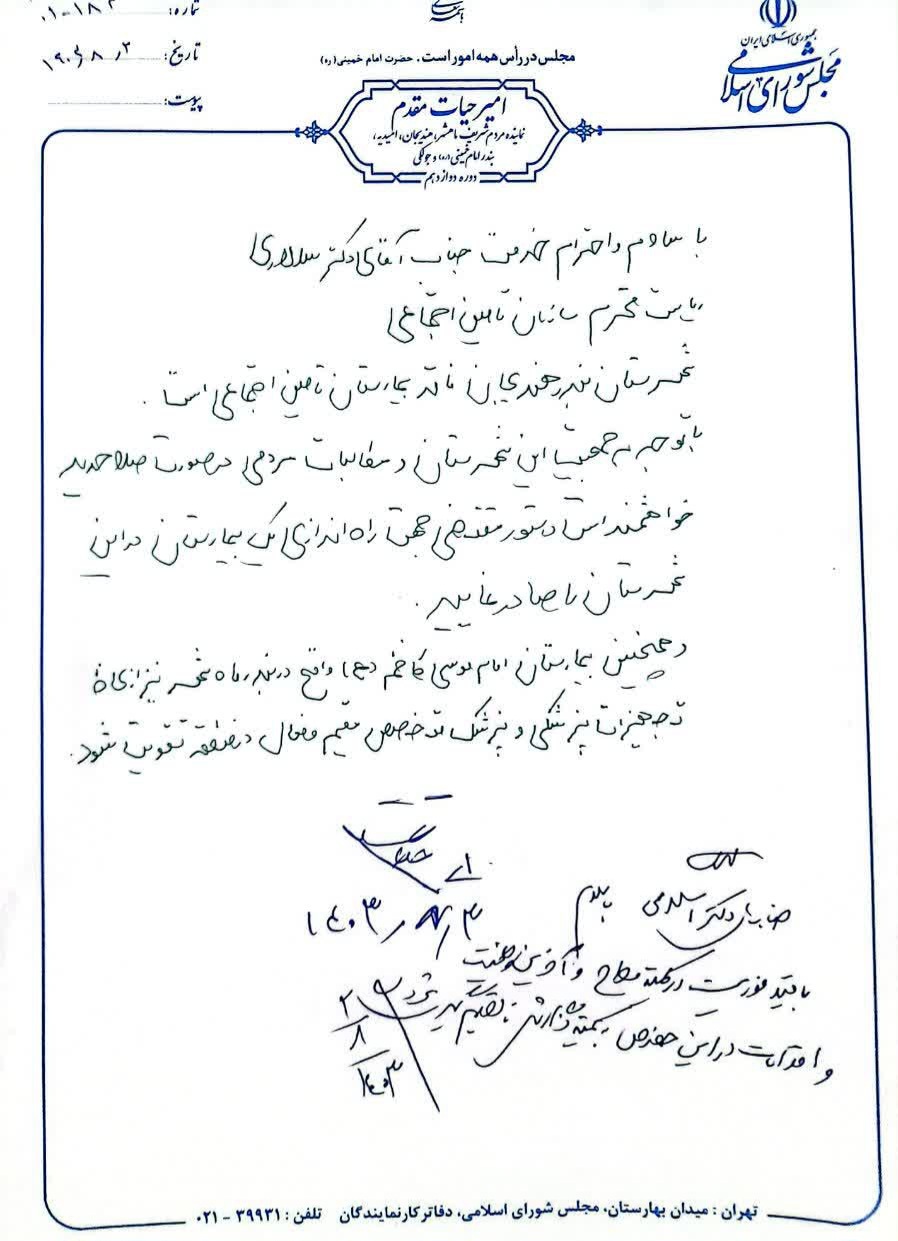 بسمه تعالی
جمهوری اسلامی ایران
مجلس شورای اسلامی
شماره:
تاریخ:
پیوست:
مجلس در رأس همه امور است. حضرت امام خمینی (ره)
امیر حیات مقدم
نماینده مردم شریف ماهشهر، هندیجان، امیدیه،
بندر امام خمینی (ره) و جولکی
دوره دوازدهم
با سلام و احترام خدمت جناب آقای دکتر سالاری
ریاست محترم سازمان تامین اجتماعی
شهرستان بندر هندیجان فاقد بیمارستان تامین اجتماعی است.
با توجه به جمعیت این شهرستان و مطالبات مردمی در صورت صلاحدید
خواهشمند است دستور مقتضی جهت راه اندازی یک بیمارستان در این
شهرستان را صادر نمایید.
و همچنین بیمارستان امام موسی کاظم (ع) واقع در بندر ماهشهر نیز از لحاظ
تجهیزات پزشکی و پزشک متخصص مقیم و فعال در منطقه تقویت شود.
۱۴۰۳/۸/۳
جناب آقای دکتر اسلامی
با سلام
با قید فوریت در کمیته مطرح و آخرین وضعیت
و اقدامات در این خصوص به کمیته گزارش
۲/۸/۱۴۰۳
تهران : میدان بهارستان، مجلس شورای اسلامی، دفاتر کار نمایندگان تلفن : ۳۹۹۳۱ - ۰۲۱